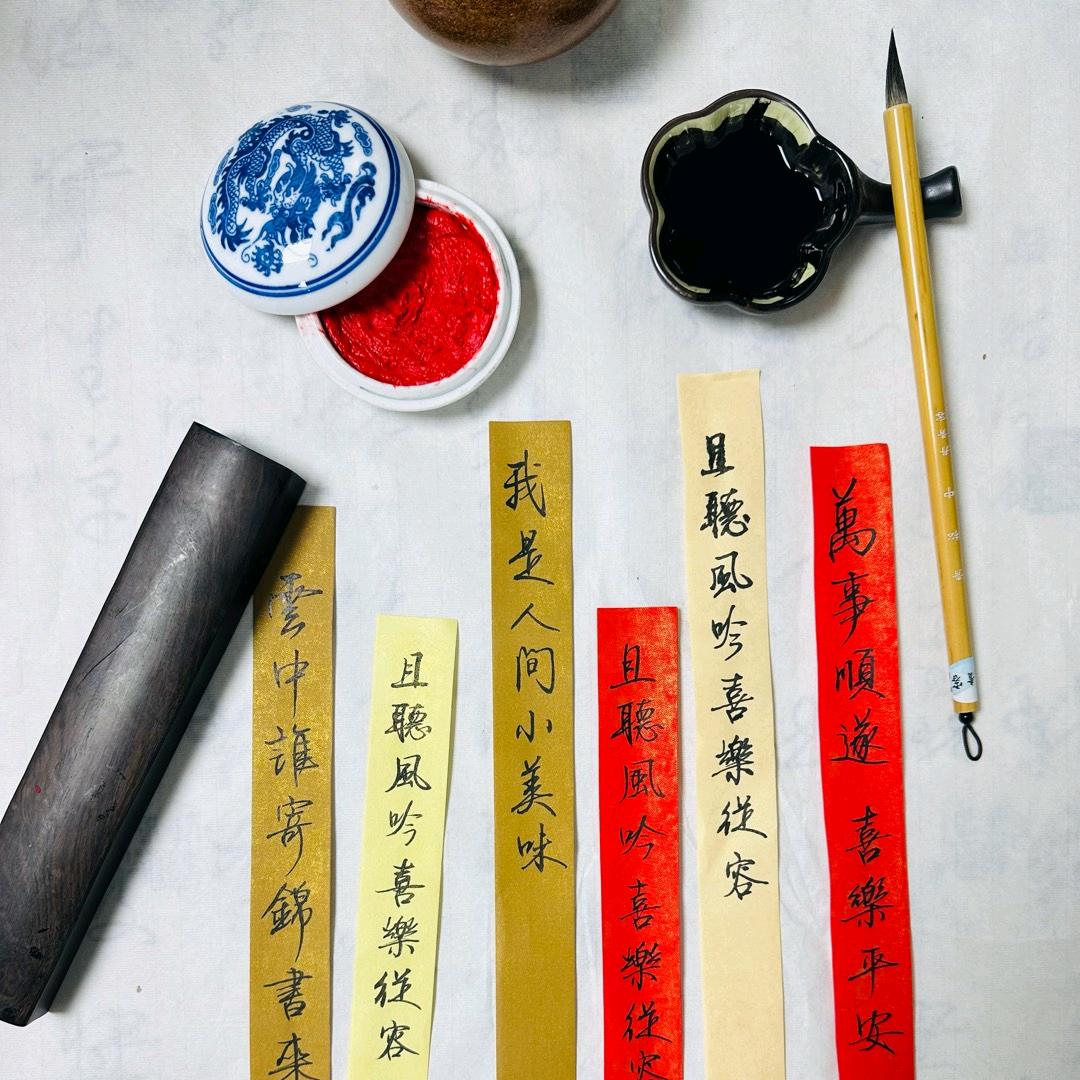 雲中誰寄錦書来
且聽風吟喜樂從容
我是人间小美味
且聽風吟喜樂從容
且聽風吟喜樂從容
萬事順遂 喜樂平安